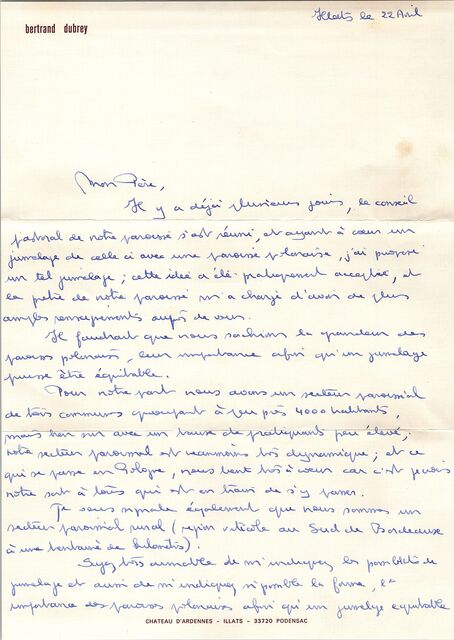 bertrand dubrey
Illats le 22 Avril
Mon Père,
Il y a déjà plusieurs jours, le conseil
pastoral de notre paroisse s'est réuni, et ayant à cœur un
jumelage de celle ci avec une paroisse polonaise, j'ai proposé
un tel jumelage ; cette idée a été pratiquement acceptée, et
le prêtre de notre paroisse m'a chargé d'avoir de plus
amples renseignements auprès de vous.
Il faudrait que nous sachions la grandeur des
paroisses polonaises, leur importance afin qu'un jumelage
puisse être équitable.
Pour notre part nous avons un secteur paroissial
de trois communes groupant à peu près 4000 habitants,
mais bien sur avec un taux de pratiquants peu élevé ;
notre secteur paroissial est néanmoins très dynamique ; et ce
qui se passe en Pologne, nous tient très à cœur car c'est
notre sort à tous qui est en train de s'y passer.
Je vous signale également que nous sommes un
secteur paroissial rural (région viticole au Sud de Bordeaux
à une trentaine de kilomètres).
Soyez très aimable de m'indiquer les possibilités de
jumelage et aussi de m'indiquer si possible la forme, l'
importance des paroisses polonaises afin qu'un jumelage équitable
CHATEAU D'ARDENNES - ILLATS - 33720 PODENSAC